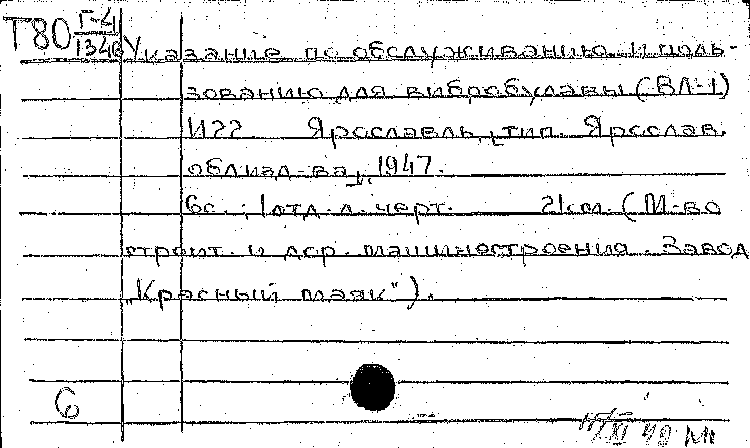 Т80 Г-4
1346
Указание по обслуживанию и поль-
зованию для вибробулавы (ВЛ-1)
И22 Ярославль, тип. Ярослав.
облизд-ва, 1947.
6с.; 1отд.л.черт. 21см. (М-во
строит. и дор. машиностроения. Завод
„Красный маяк").
6